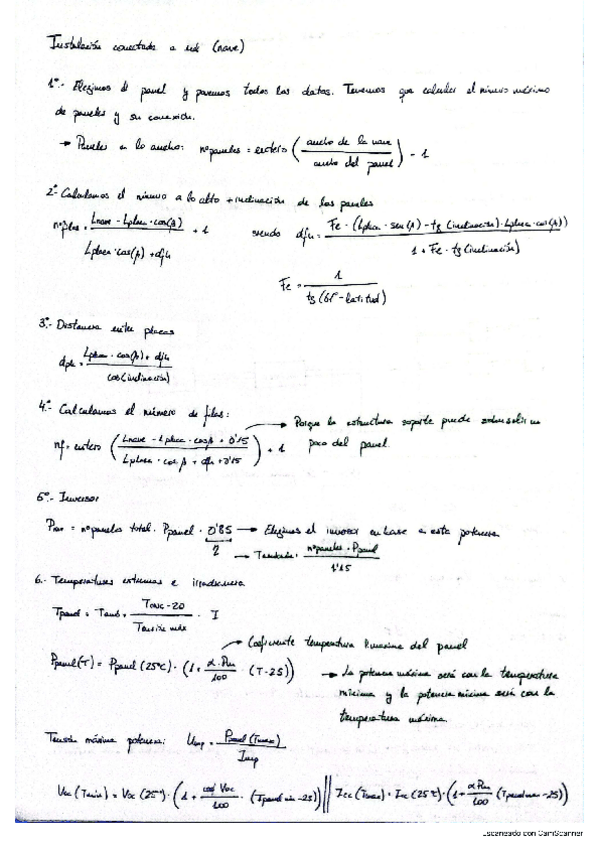 Instalación conectada a red (nave)
1º.- Elegimos el panel y ponemos todos los datos. Tenemos que calcular el número máximo
de paneles y su conexión.
→ Paneles a lo ancho: nºpaneles = entero (ancho de la nave / ancho del panel) - 1
2º Calculamos el número a lo alto + inclinación de los paneles
nºfilas = (Lnave - Lplaca · cos(β)) / (Lplaca · cos(β) + dfh) + 1 siendo dfh = (Fe · (Lplaca · sen(β) - tg (inclinación) · Lplaca · cos(β))) / (1 + Fe · tg (inclinación))
Fe = 1 / tg (61º - latitud)
3º.- Distancia entre placas
dph = (Lplaca · cos(β) + dfh) / cos(inclinación)
4º.- Calculamos el número de filas:
→ Porque la estructura soporte puede sobresalir un
poco del panel.
nf = entero ((Lnave - Lplaca · cosβ + 0'15) / (Lplaca · cosβ + dfh + 0'15)) + 1
5º.- Inversor
= nºpaneles total · Ppanel · 0'85 → Elegimos el inversor en base a esta potencia
→ nºpaneles · Ppanel / 1'15
6.- Temperaturas extremas e irradiancia
Tpanel = Tamb + (Tonc - 20) / · I
→ Coeficiente temperatura Pmáxima del panel
Ppanel(T) = Ppanel (25ºC) · (1 + α · Pm / 100 · (T - 25))
→ La potencia máxima será con la temperatura
mínima y la potencia mínima será con la
temperatura máxima.
Tensión máxima potencia: Ump = Ppanel (Tmax) / Imp
Voc (Tmin) = Voc (25º) · (1 + coef Voc / 100 · (Tpanel min - 25)) || Icc (Tmax) = Icc (25ºC) · (1 + α Pm / 100 (Tpanel max - 25))
Escaneado con CamScanner